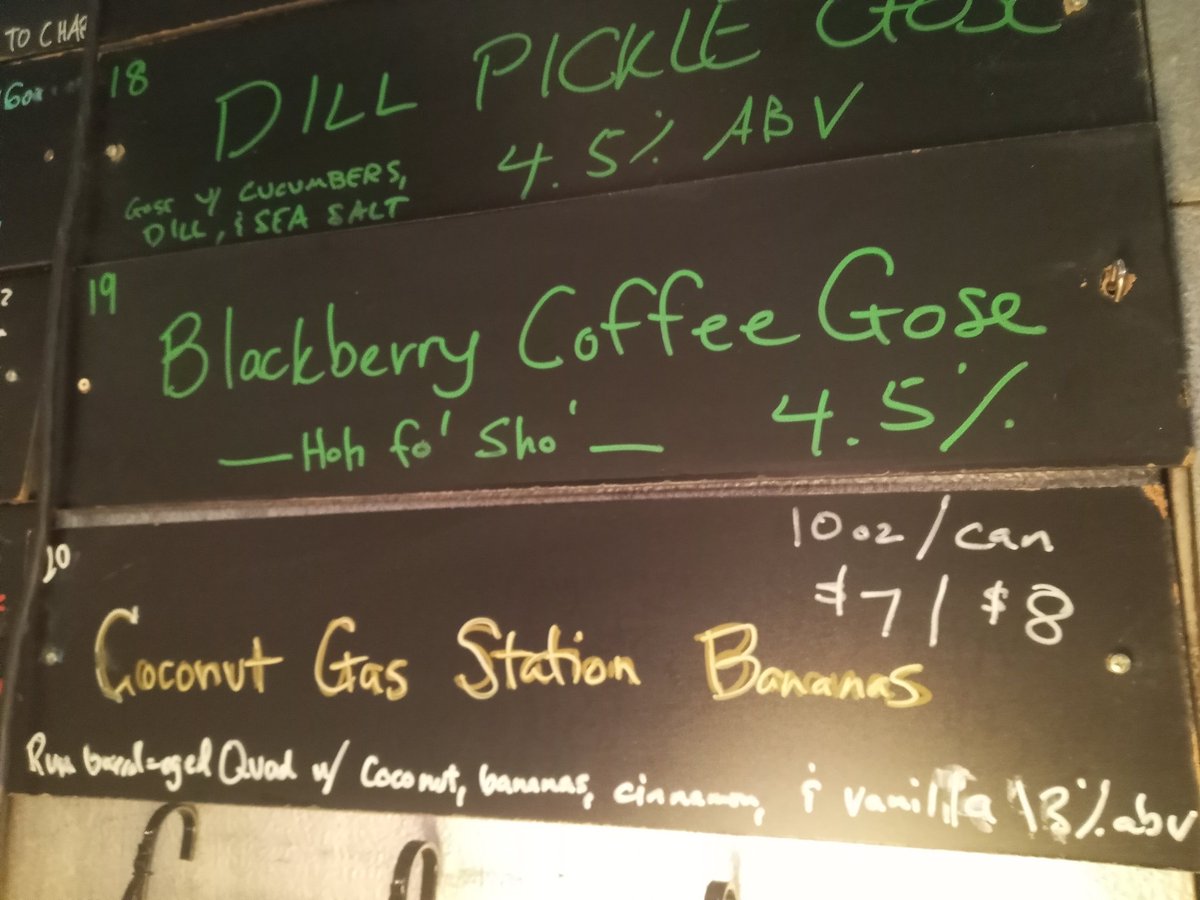 TO CHAR
18
DILL PICKLE GOSE
4.5% ABV
GOSE w/ CUCUMBERS,
DILL, & SEA SALT
19
Blackberry Coffee Gose
—Hoh fo' Sho'—
4.5%
20
10oz/can
$7/$8
Coconut Gas Station Bananas
Rum barrel-aged Quad w/ Coconut, bananas, cinnamon, & vanilla 13% abv